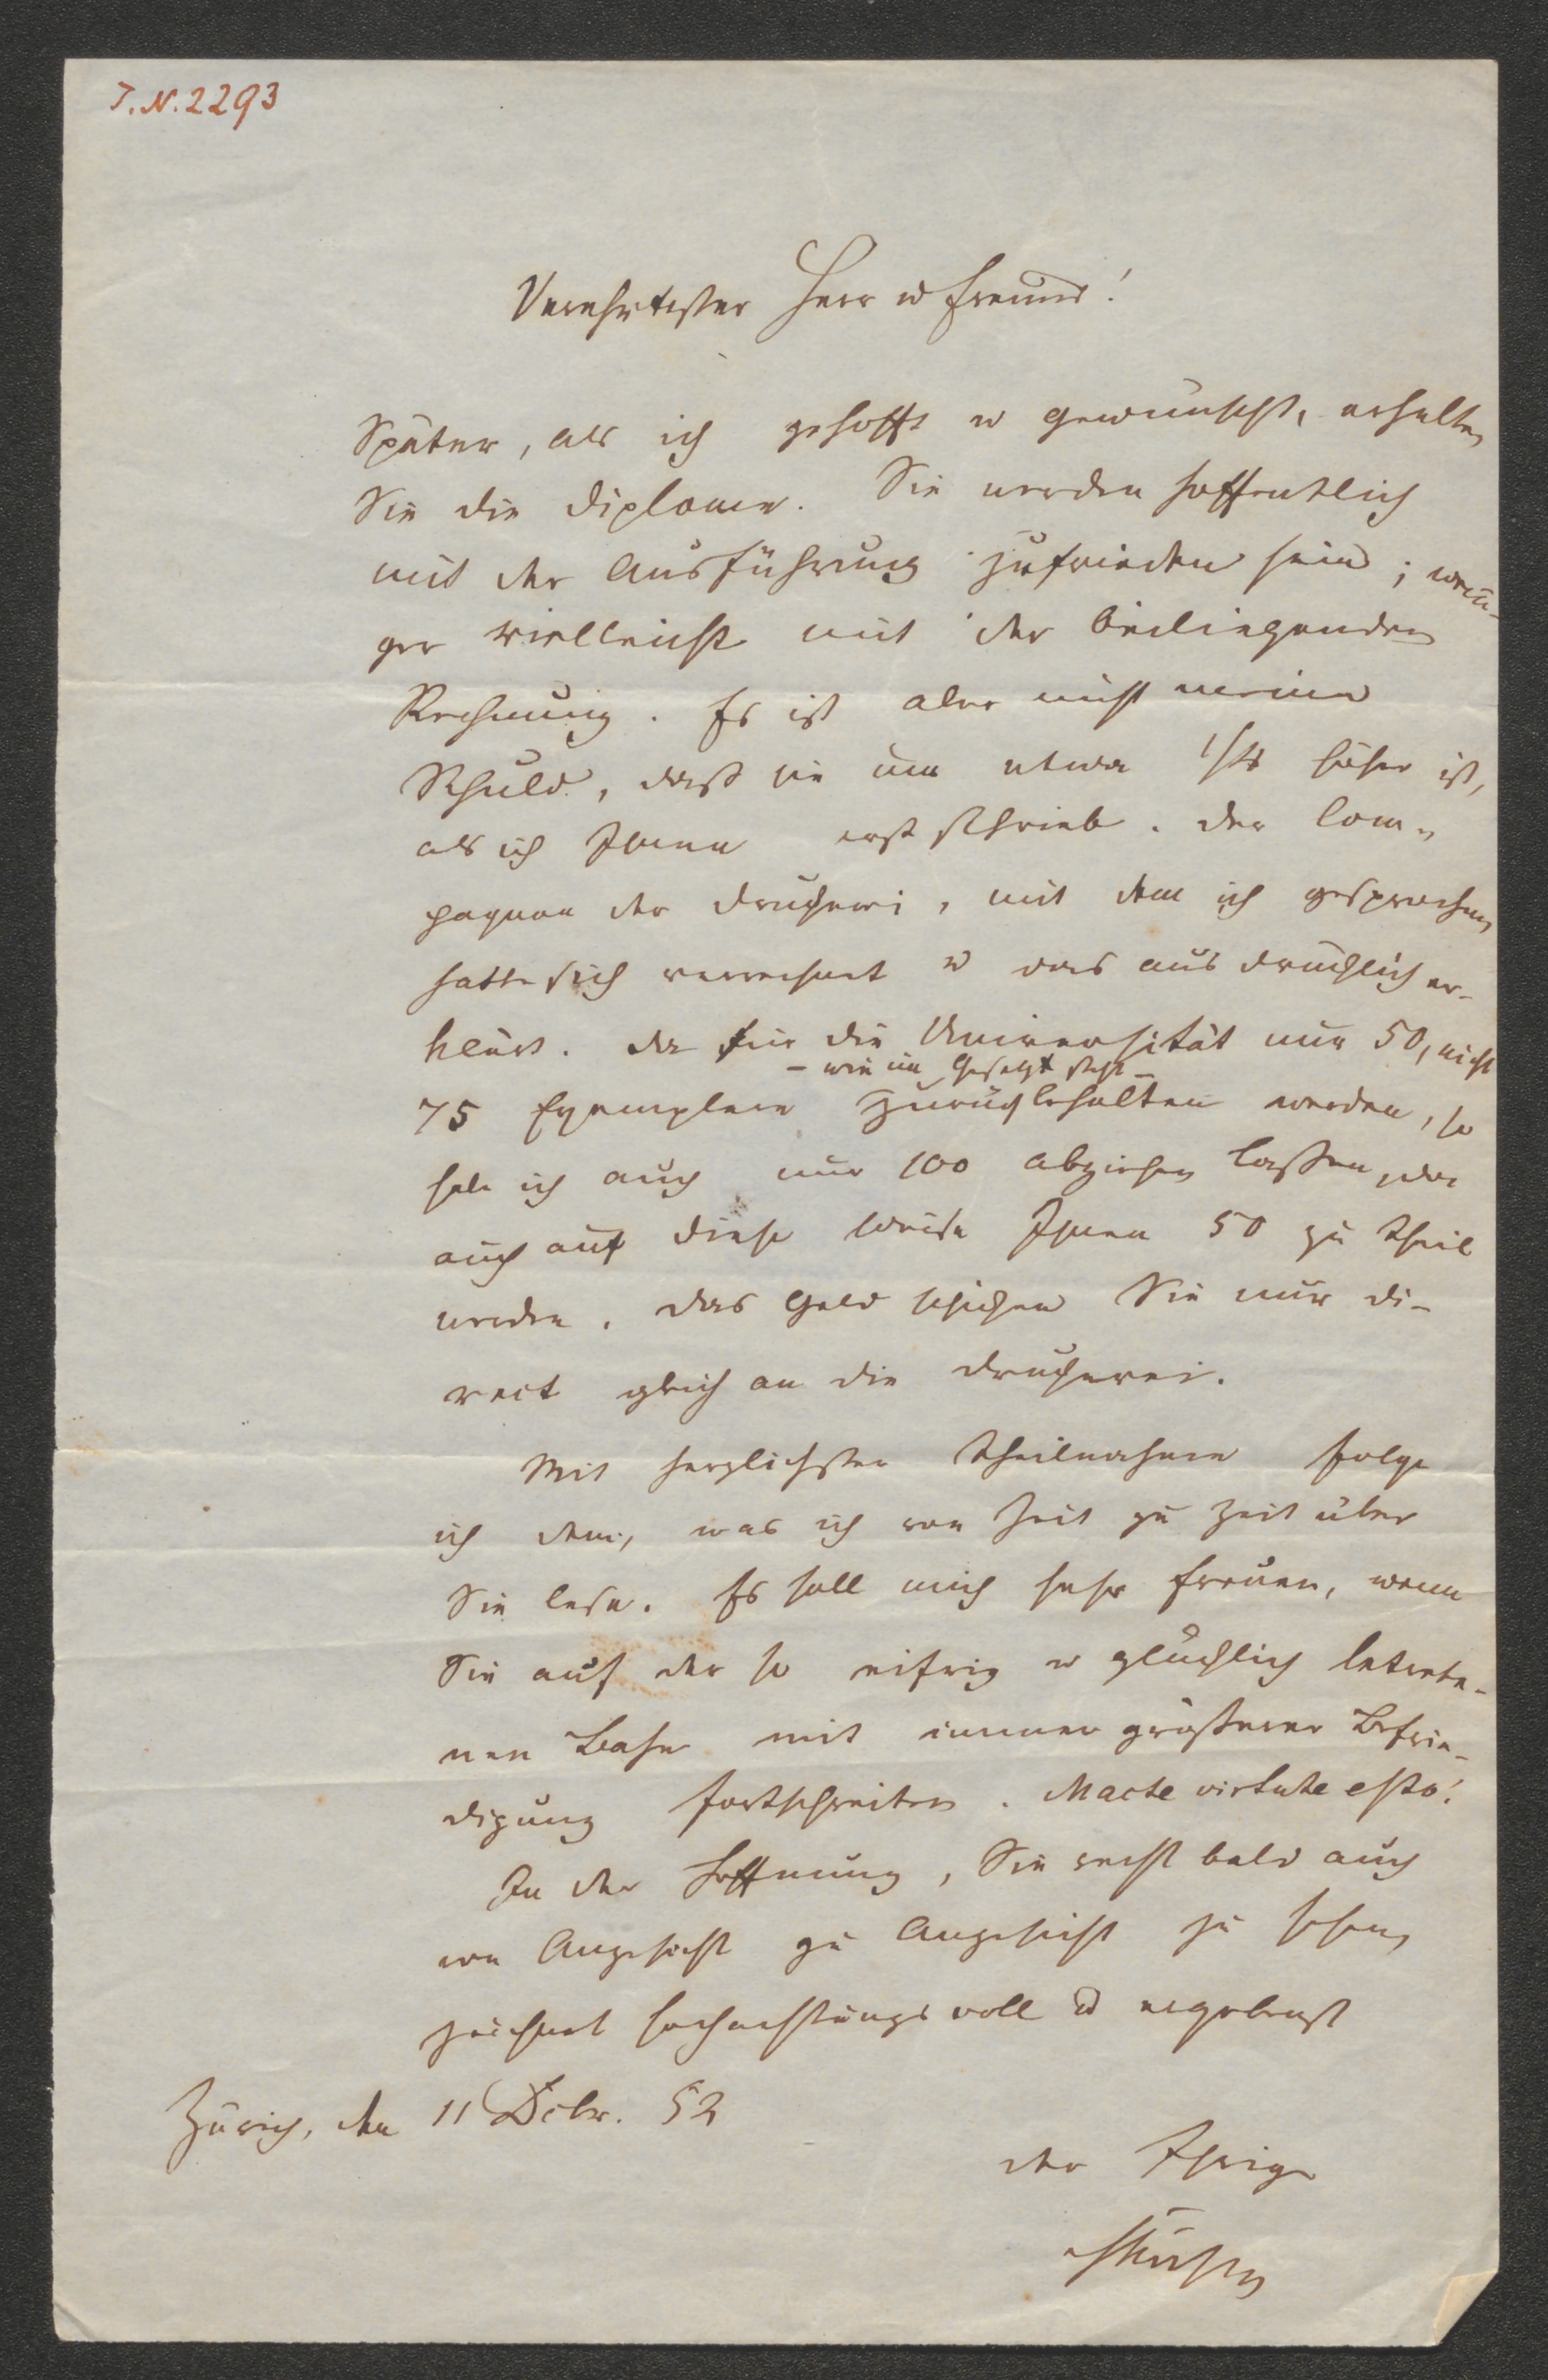 T.N. 2293
Verehrtester Herr u Freund!
Später, als ich gehofft u gewünscht, erhalten
Sie die Diplome. Sie werden hoffentlich
mit der Ausführung zufrieden sein; weni-
ger vielleicht mit der beiliegenden
Rechnung. Es ist aber nicht meine
Schuld, daß sie um etwa höher ist,
als ich Ihnen erst schrieb. Der Com-
pagnon der Druckerei, mit dem ich gesprochen
hatte sich verrechnet u das ausdrücklich er-
klärt. Da für die Universität nur 50, nicht
– wie im Gesetzt steht –
75 Exemplare zurückbehalten werden, so
hab ich auch nur 100 abziehen lassen, da
auch auf diese Weise Ihnen 50 zu Theil
werden. Das Geld schicken Sie nur di-
rect gleich an die Druckerei.
Mit herzlichster Theilnahme folge
ich dem, was ich von Zeit zu Zeit über
Sie lese. Es soll mich sehr freuen, wenn
Sie auf der so eifrig u glücklich betrete-
nen Bahn mit immer größerer Befrie-
digung fortschreiten. Macte virtute esto!
In der Hoffnung, Sie recht bald auch
von Angesicht zu Angesicht zu sehen,
zeichnet hochachtungsvoll u ergebenst
Zürich, den 11 Dcbr. 52
der Ihrige